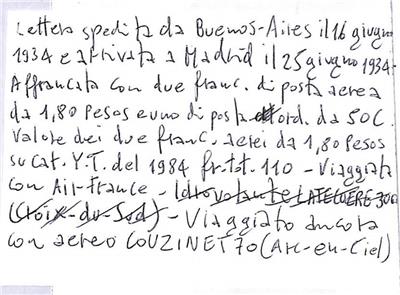 Lettera spedita da Buenos-Aires il 16 giugno
1934 e arrivata a Madrid il 25 giugno 1934-
Affrancata con due franc. di posta aerea
da 1,80 Pesos e uno di posta ord. da 50 C.
Valore dei due franc. aerei da 1,80 Pesos
su Cat. Y.T. del 1984 fr. tot. 110 - Viaggiata
con Air-France - Idrovolante LATECOERE 300
(Croix-du-Sud) - Viaggiato ancora
con aereo COUZINET 70 (Arc-en-Ciel)